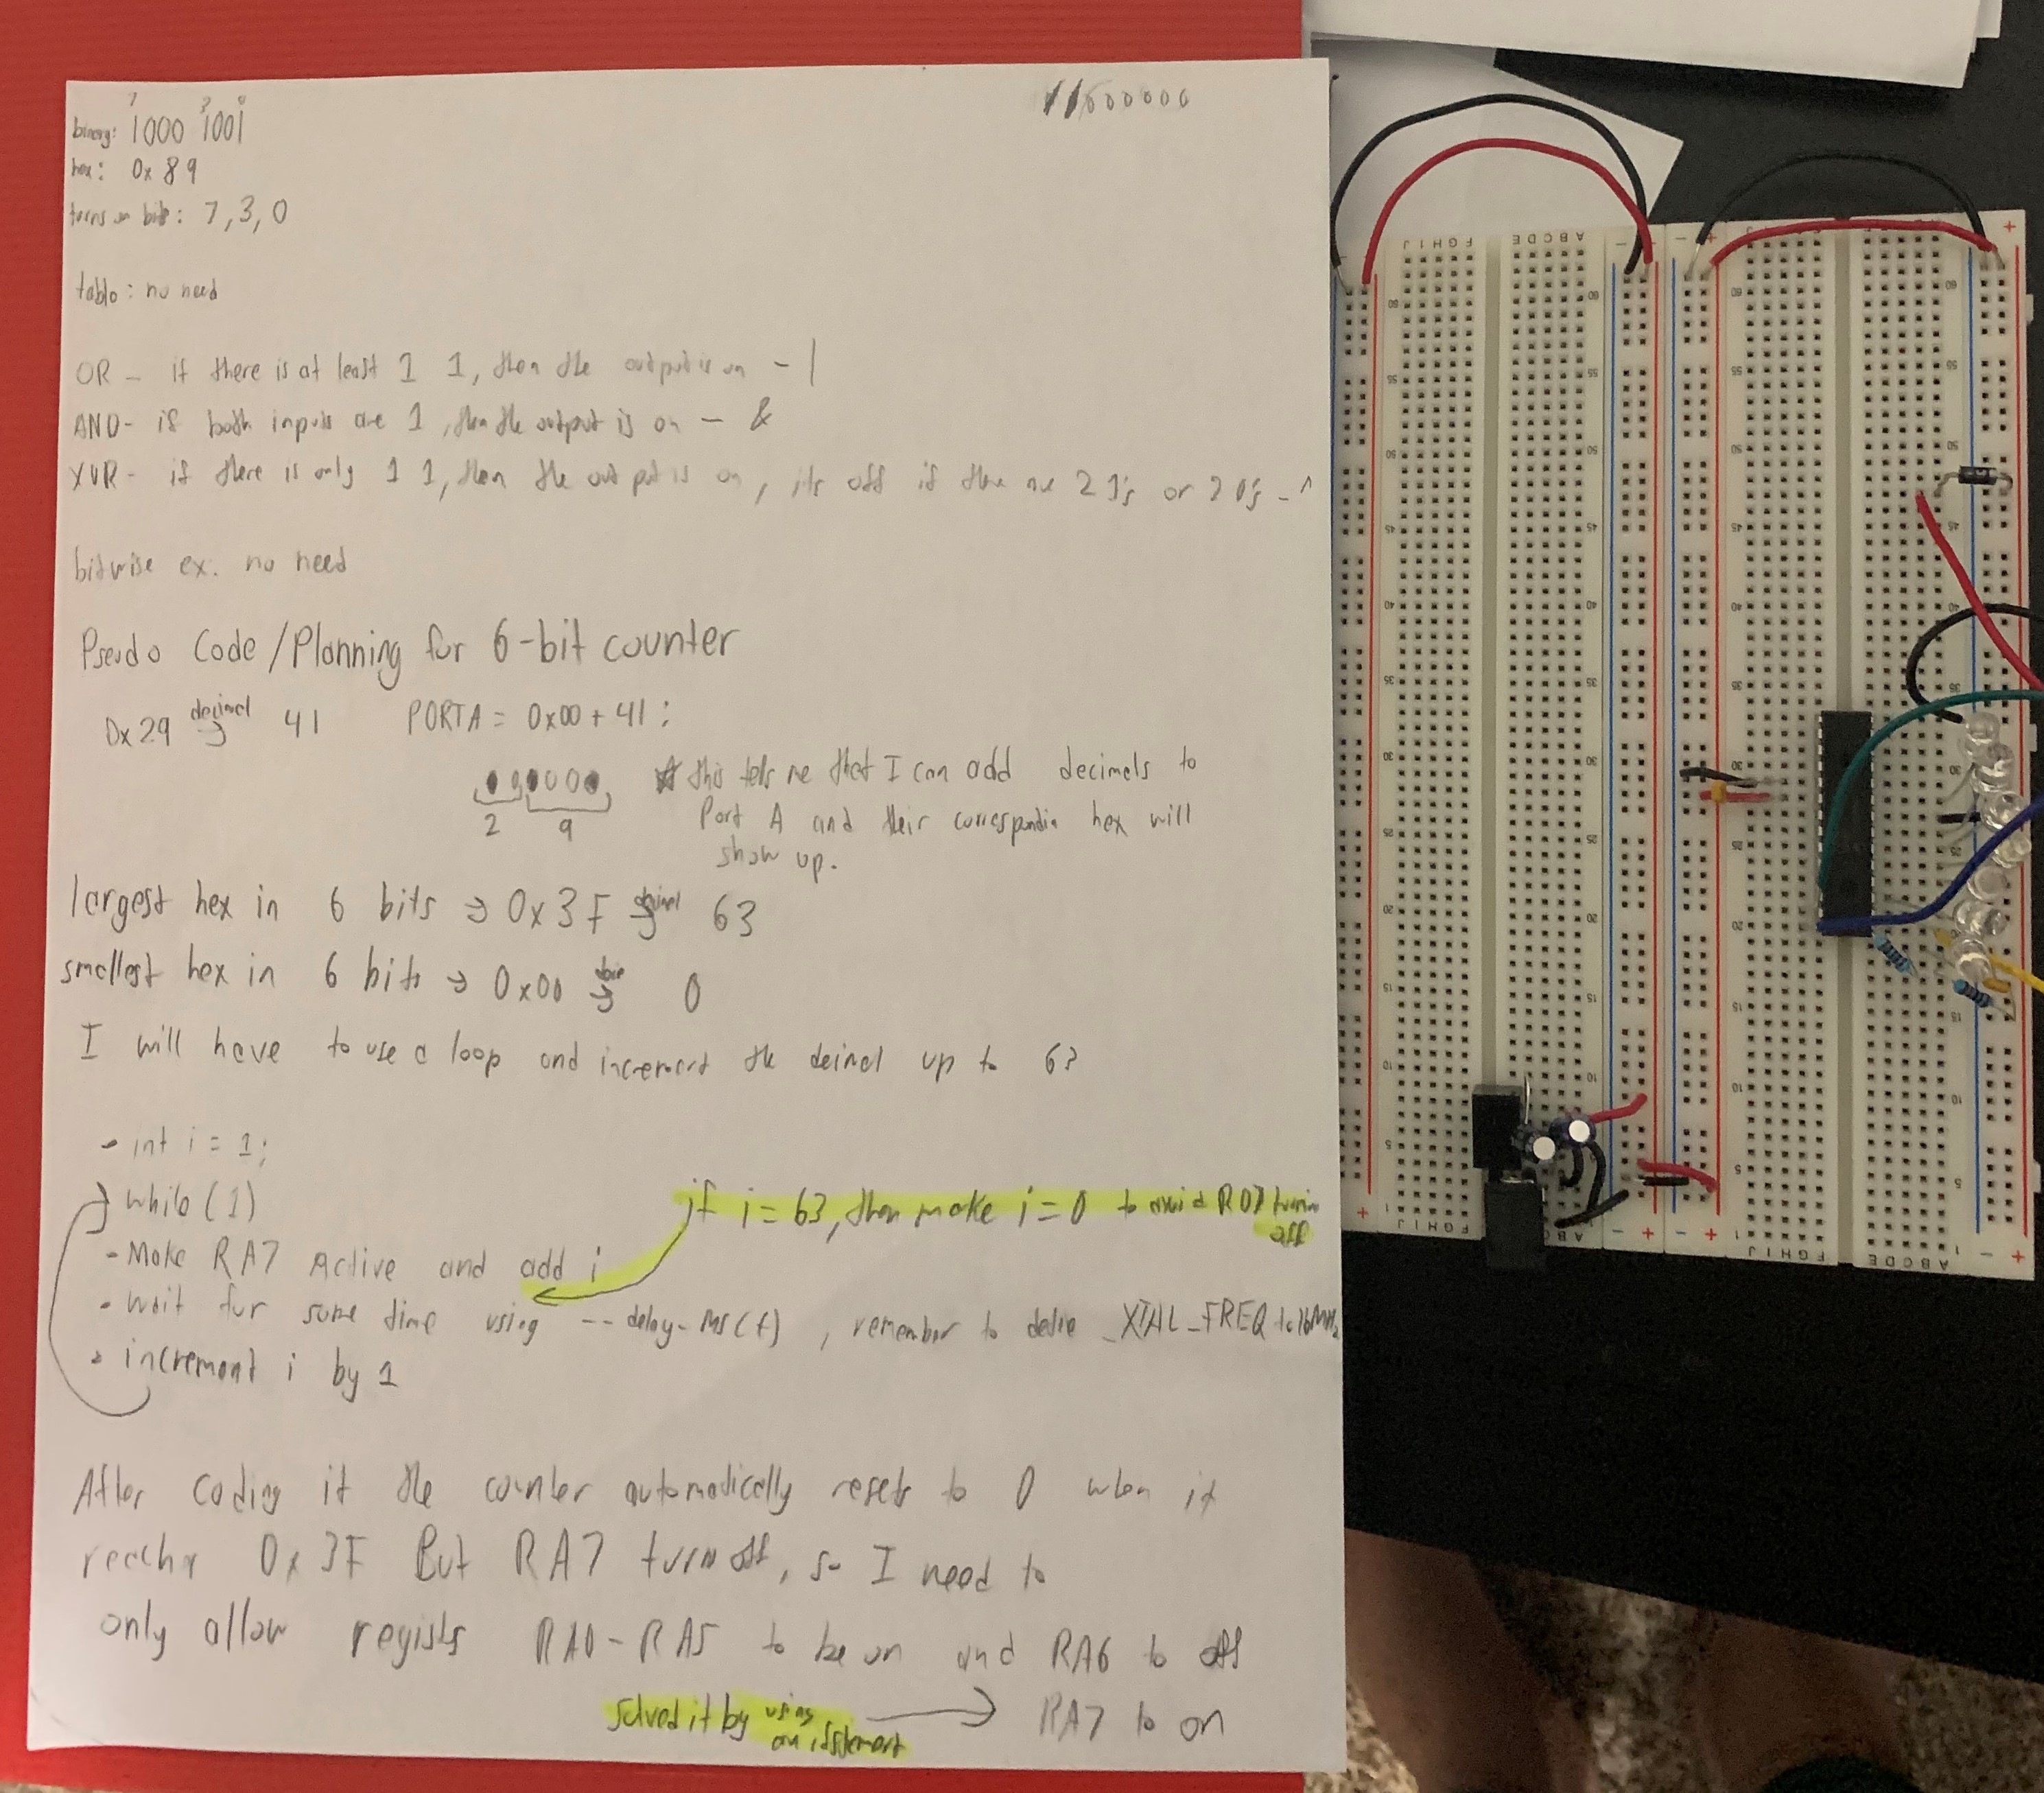 11000000
7 3 0
binary: 1000 1001
hex: 0x89
turns on bits: 7,3,0
table: no need
OR - if there is at least 1 1, then the output is on - |
AND- if both inputs are 1, then the output is on - &
XOR- if there is only 1 1, then the output is on, its off if there are 2 1's or 2 0's - ^
bitwise ex. no need
Pseudo Code/Planning for 6-bit counter
0x29 decimal → 41 PORTA = 0x00 + 41;
2 9
☆ this tells me that I can add decimals to
Port A and their correspondin hex will
show up.
largest hex in 6 bits → 0x3F decimal → 63
smallest hex in 6 bits → 0x00 → 0
I will have to use a loop and increment the decimal up to 63
- int i = 1;
while (1)
if i = 63, then make i = 0 to avoid RA7 turnin
off
- Make RA7 Active and add i
- wait for some time using __delay_ms(t), remember to define _XTAL_FREQ to 16MHz
- increment i by 1
After coding it the counter automatically resets to 0 when it
reachs 0x3F But RA7 turn off, so I need to
only allow regists RA0-RA5 to be on and RA6 to off
solved it by using → RA7 to on
an if statement